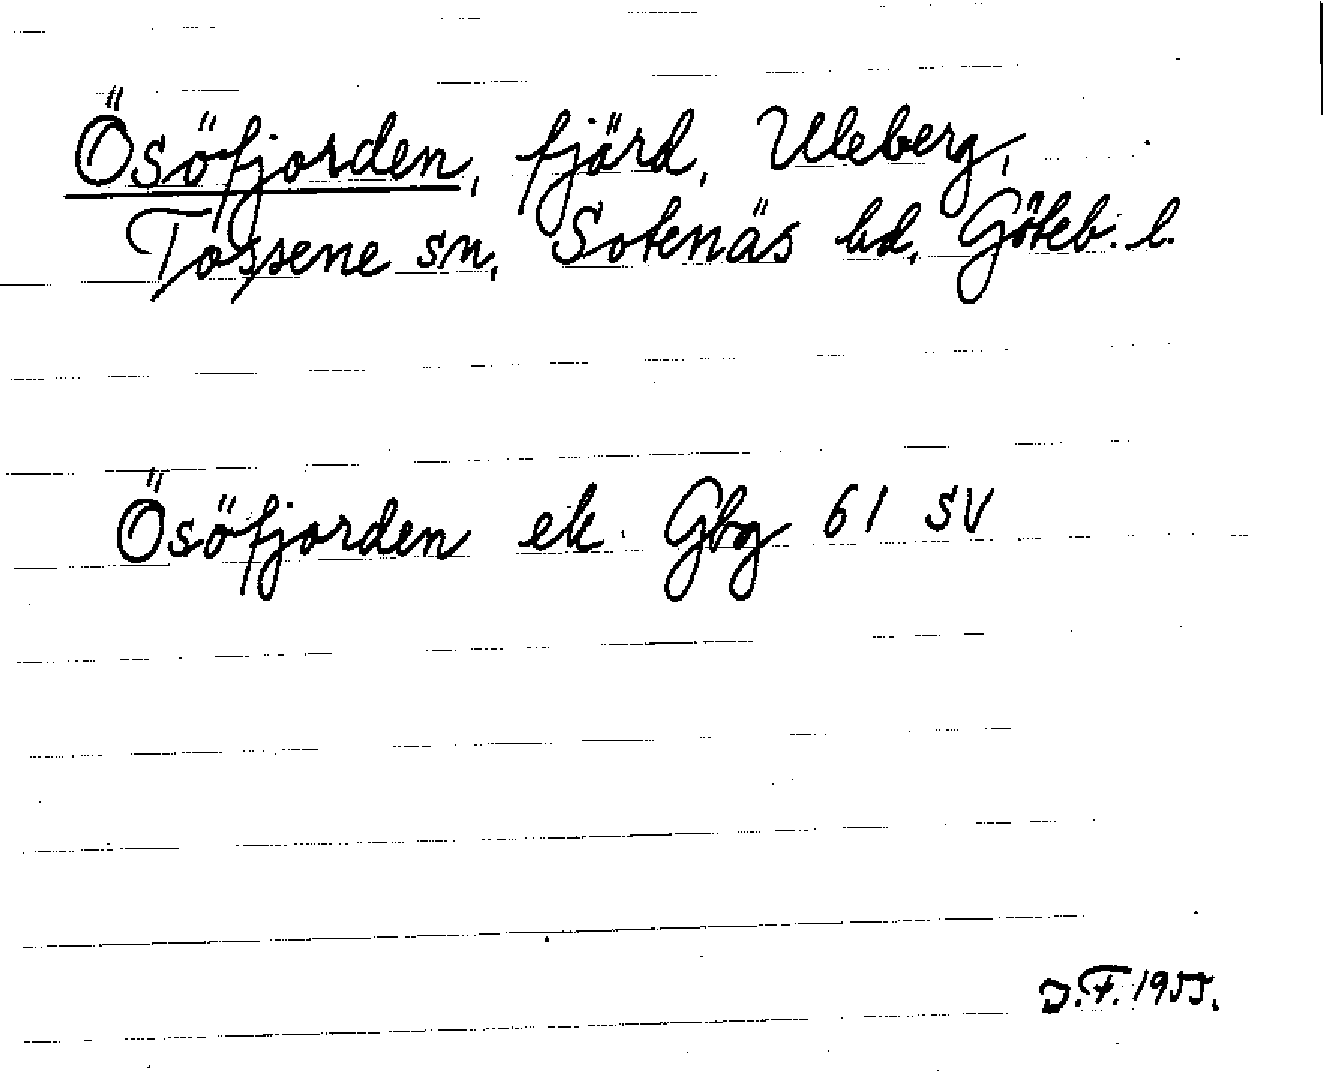 Ösöfjorden, fjärd, Uleberg,
Tossene sn, Sotenäs hd, Göteb. l.
Ösöfjorden ek. Gbg 61 SV
D.F. 1955.